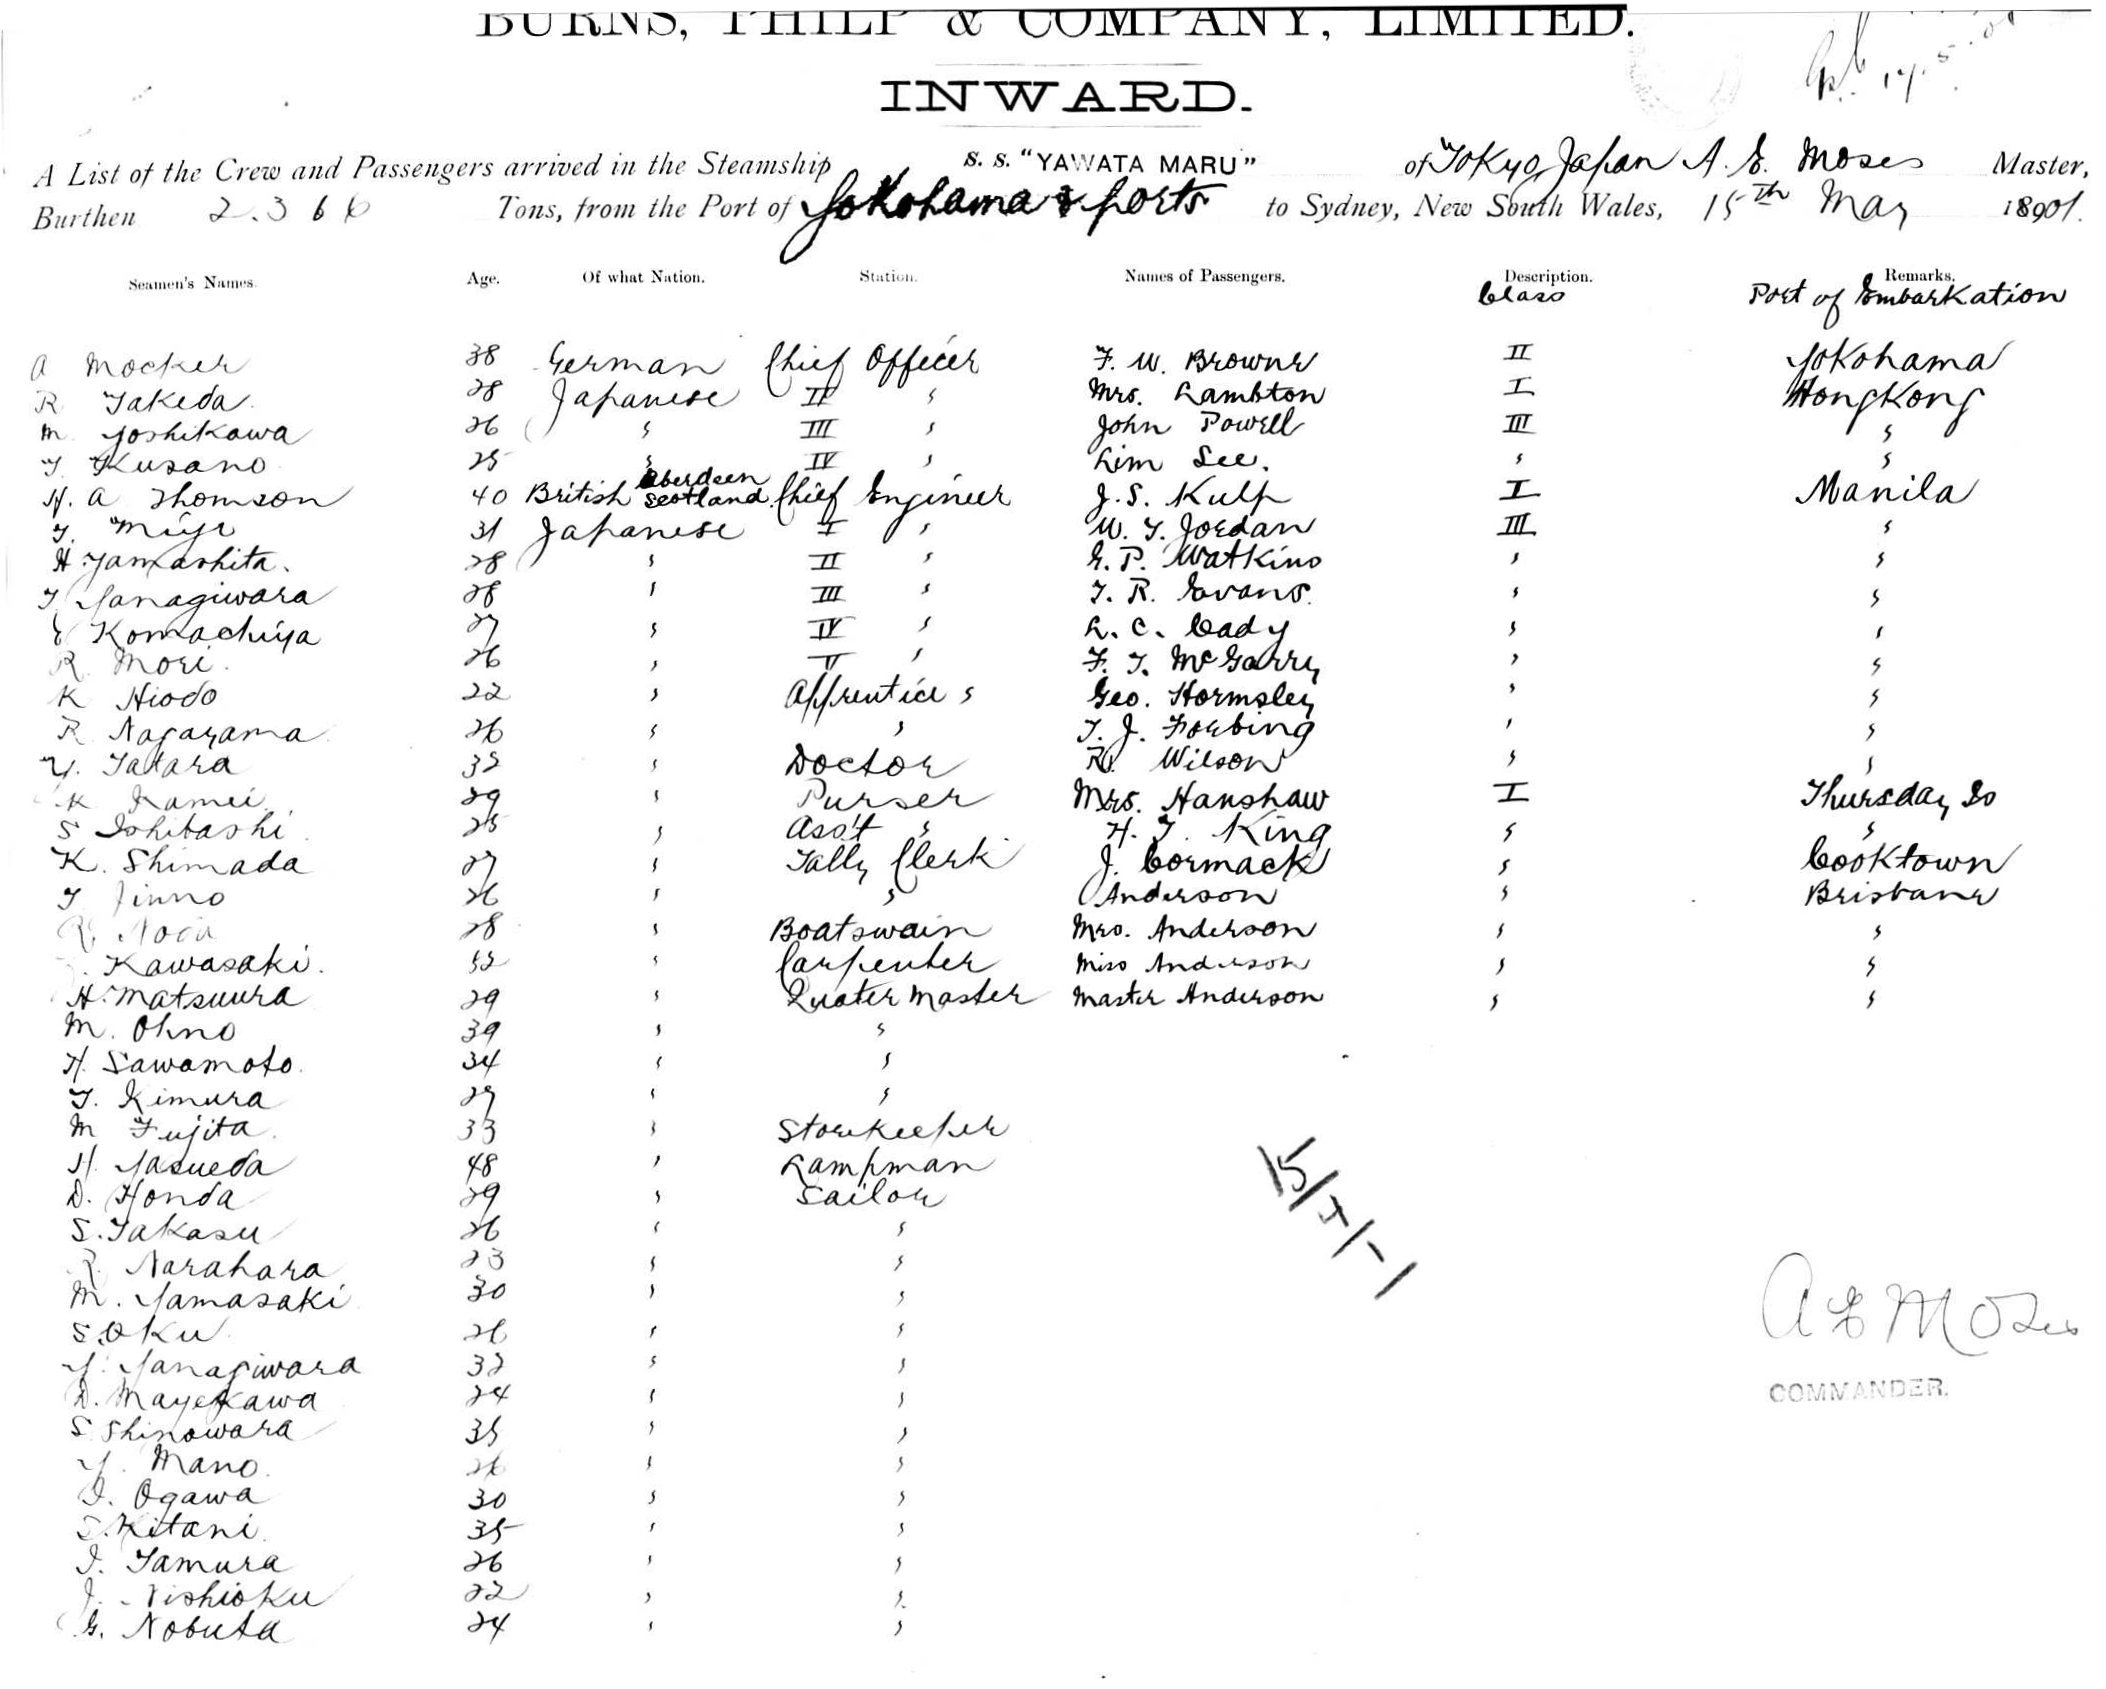 BURNS, PHILP & COMPANY, LIMITED.
INWARD.
A List of the Crew and Passengers arrived in the Steamship S. S. "YAWATA MARU" of Tokyo, Japan A. E. Moses Master,
Burthen 2.366 Tons, from the Port of Yokohama & Ports to Sydney, New South Wales, 15th May 18901.
Seamen's Names. Age. Of what Nation. Station. Names of Passengers. Description. Remarks.
Class Port of Embarkation
A Mocker 38 German Chief Officer F. W. Browne II Yokohama
R Takeda 28 Japanese II " Mrs. Lambton I HongKong
M. Yoshikawa 26 " III " John Powell III "
T. Kusano 25 " IV " Lim See. " "
H. A Thomson 40 British Aberdeen Scotland Chief Engineer J. S. Kulp I Manila
T. Miye 31 Japanese I " W. T. Jordan III "
H Yamashita. 28 " II " E. P. Watkins " "
T Yanagiwara 28 " III " T. R. Evans. " "
Komachiya 27 " IV " L. C. Cady " "
R. Mori. 26 " V " F. T. McGarry " "
K Hiodo 22 " Apprentice " Geo. Hormsley " "
R Nagayama 26 " " T. J. Foebing " "
Y. Tatara 32 " Doctor R. Wilson " "
K Kamei 29 " Purser Mrs. Hanshaw I Thursday Is
S Ishibashi 25 " Ass't " H. T. King " "
K. Shimada 27 " Tally Clerk J. Cormack " Cooktown
T Jinno 26 " " Anderson " Brisbane
R. Noda 28 " Boatswain Mrs. Anderson " "
Kawasaki. 32 " Carpenter Miss Anderson " "
H. Matsuura 29 " Quater Master Master Anderson " "
M. Ohno 39 " "
H. Sawamoto. 34 " "
T. Kimura 27 " "
M Fujita. 33 " Storekeeper
H. Yasueda 48 " Lampman
D. Honda 29 " Sailor
S. Takasu 26 " "
R. Narahara 23 " "
M. Yamasaki 30 " "
S. Oku 26 " "
Y. Yanagiwara 32 " "
D. Mayekawa 24 " "
S Shinowara 35 " "
Y. Mano. 26 " "
I. Ogawa 30 " "
S. Kitani. 35 " "
I. Tamura 26 " "
J. Nishioku 22 " "
G. Nobuta 24 " "
15/5/-1
A E Moses
COMMANDER.